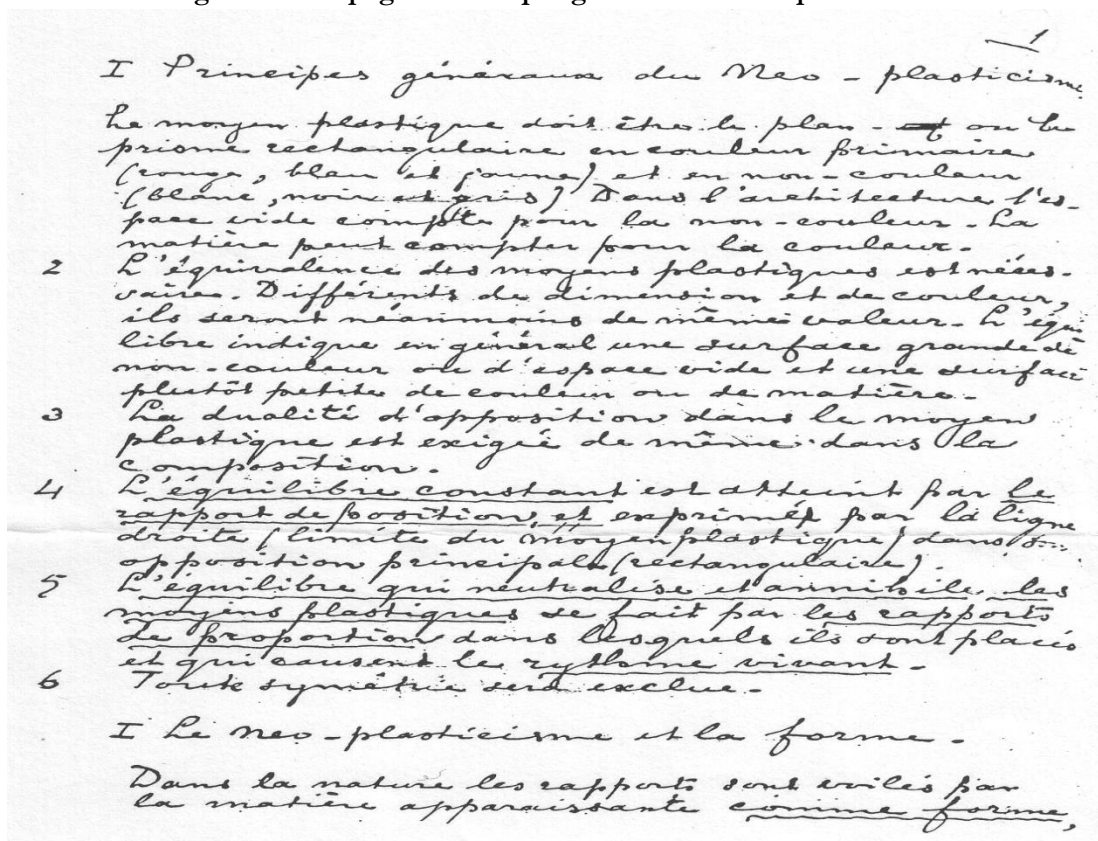 1
I Principes généraux du Neo-plasticisme.
Le moyen plastique doit être le plan - ou le
prisme rectangulaire en couleur primaire
(rouge, bleu et jaune) et en non-couleur
(blanc, noir et gris) Dans l'architecture l'es-
pace vide compte pour la non-couleur. La
matière peut compter pour la couleur.
2 L'équivalence des moyens plastiques est néces-
saire. Différents de dimension et de couleur,
ils seront néanmoins de même valeur. L'équi
libre indique en général une surface grande de
non-couleur ou d'espace vide et une surface
plutôt petite de couleur ou de matière.
3 La dualité d'opposition dans le moyen
plastique est exigée de même dans la
composition.
4 L'équilibre constant est atteint par le
rapport de position, et exprimé par la ligne
droite (limite du moyen plastique) dans
opposition principale (rectangulaire).
5 L'équilibre qui neutralise et annihile les
moyens plastiques se fait par les rapports
de proportion dans lesquels ils sont placés
et qui causent le rythme vivant.
6 Toute symétrie sera exclue.
I Le neo-plasticisme et la forme.
Dans la nature les rapports sont voilés par
la matière apparaissante comme forme,